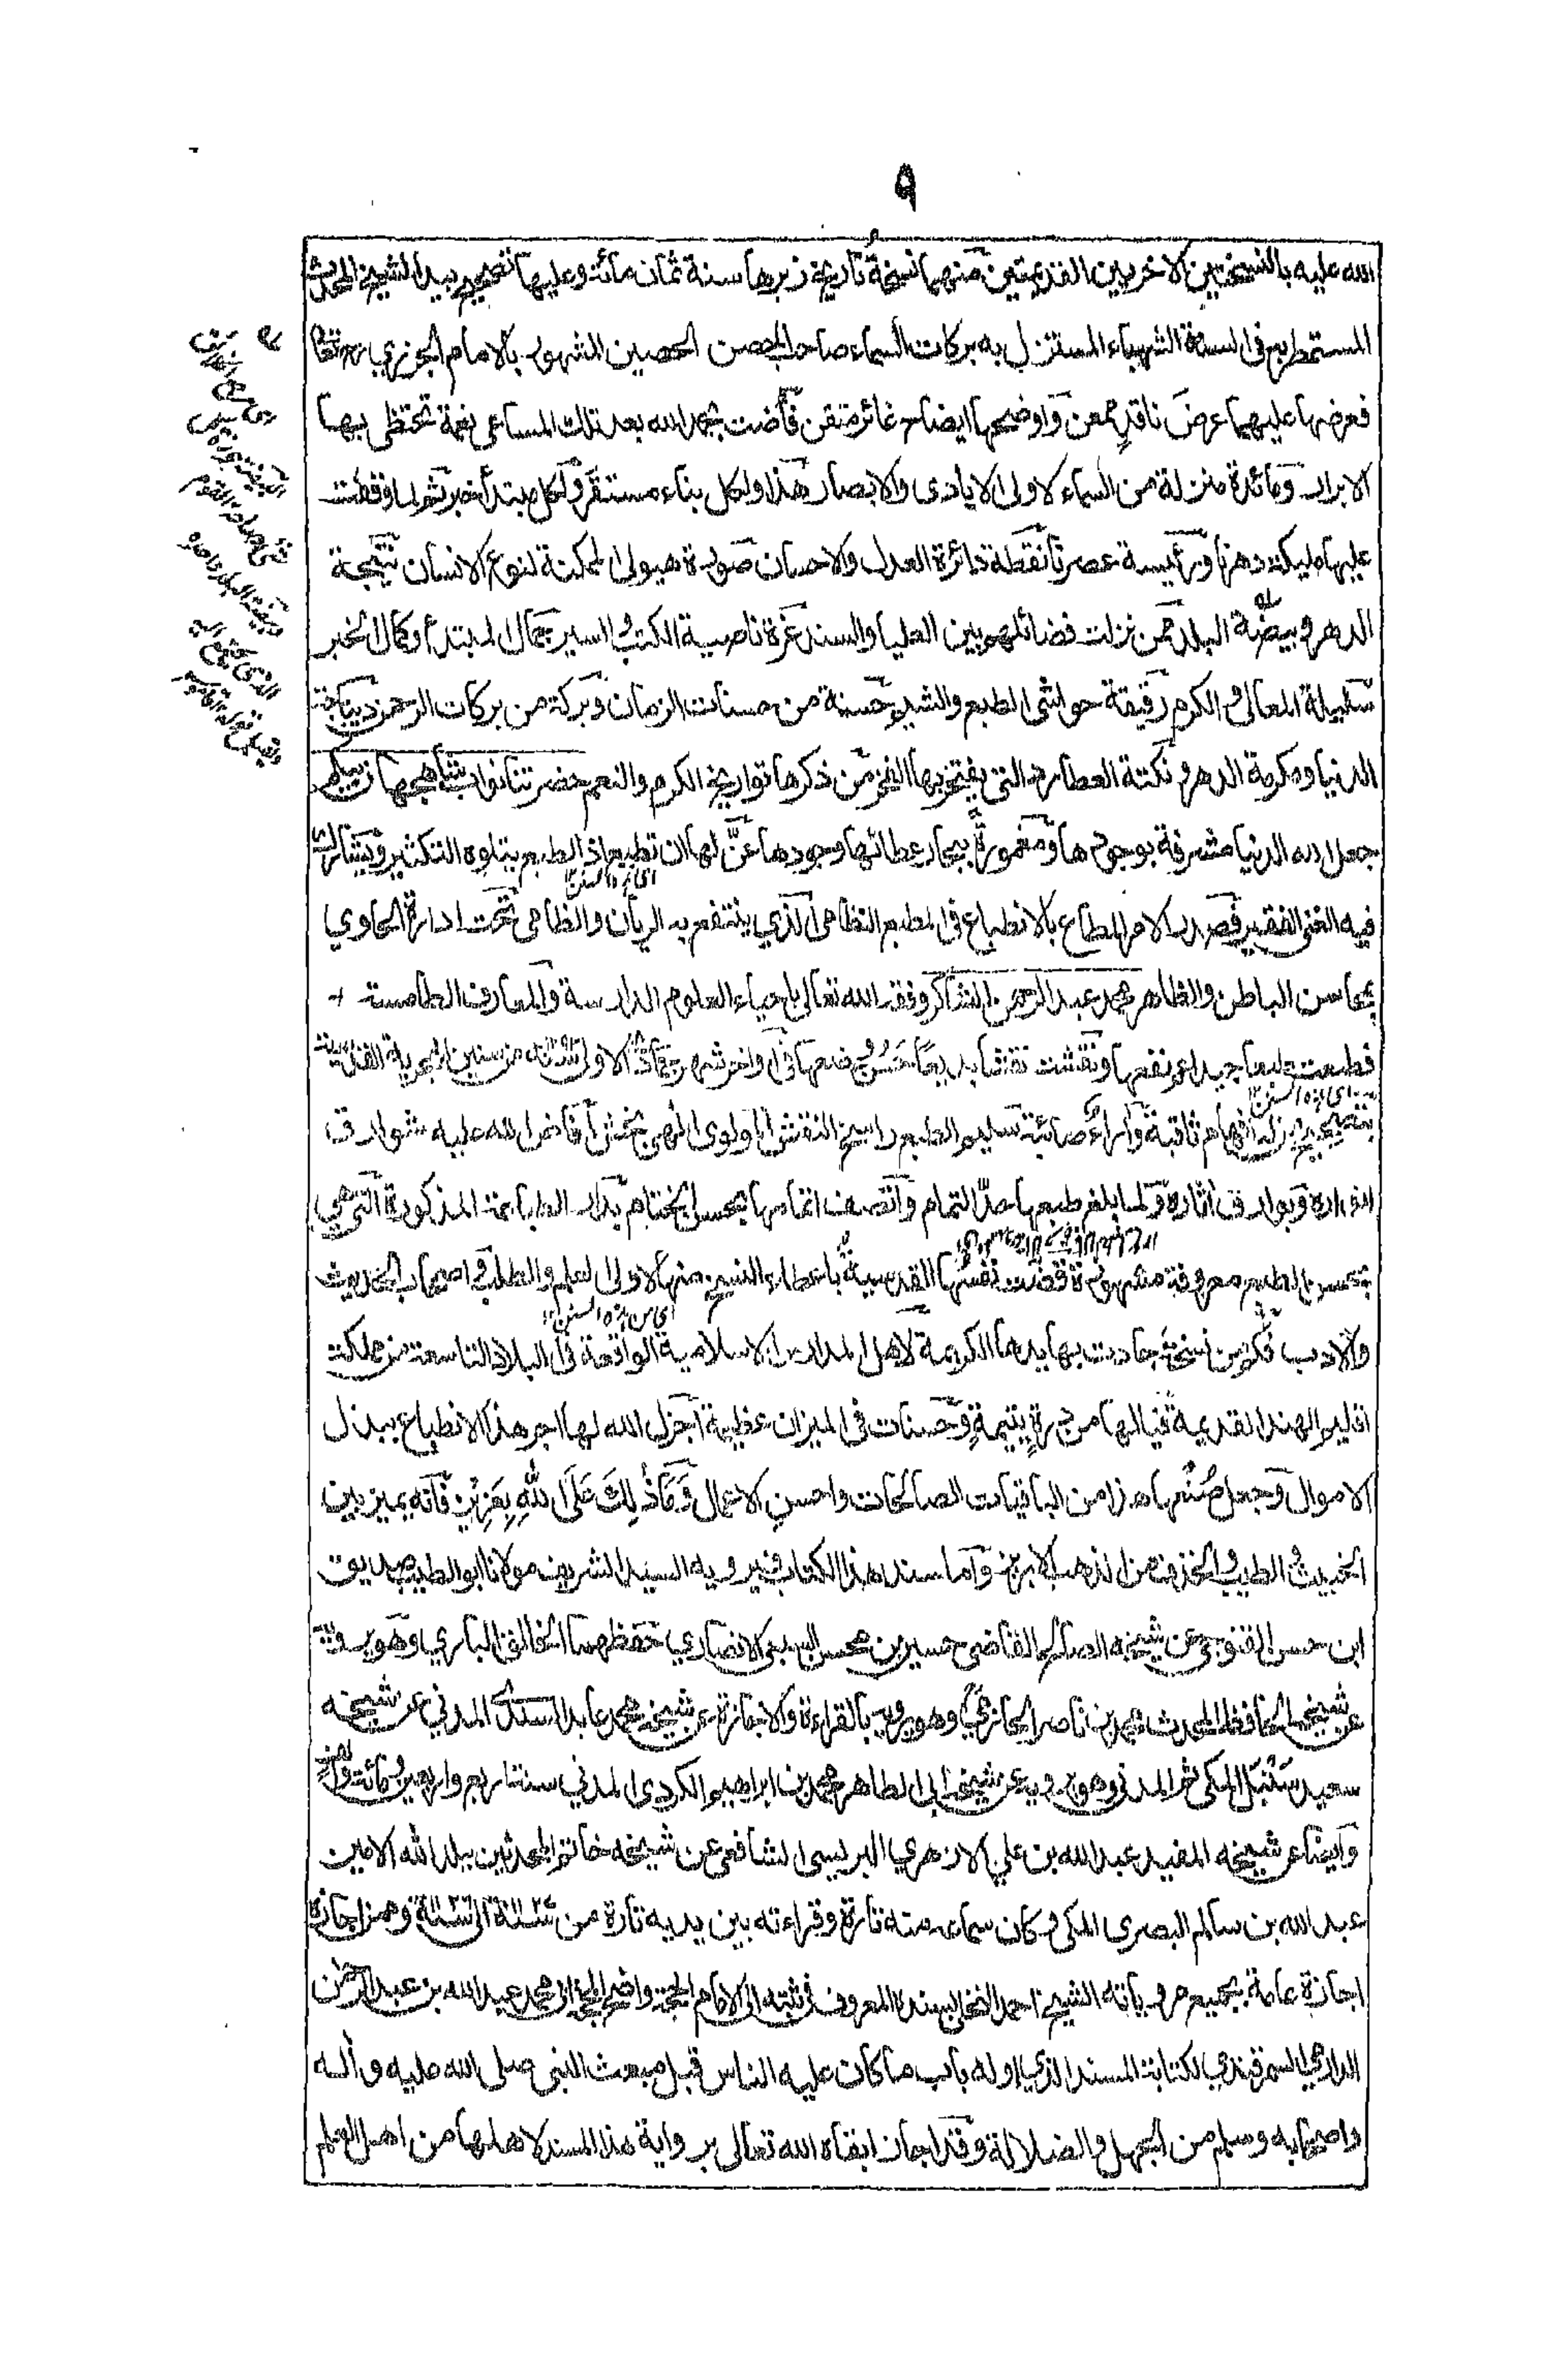 ٩
الله عليه بالنسختين الاخريين القديمتين منهما نسخة تاريخ زبرها سنة ثمان مائة وعليها تصحيح بيد الشيخ المحدث
المستمطر به في السنة الشهباء المستنزل به بركات السماء صاحب الحصن الحصين المشهور بالامام الجزري رح تعا
فعرضها عليهما عرض ناقد ممعن واوضحها ايضاح غائر متقن فأضت بحمد الله بعد تلك المساعي نعمة تحتظى بها
الابرار ومائدة منزلة من السماء لاولى الايادى والابصار هذا ولكل بناء مستقر ولكل مبتدأ خبر ثم لما وقفت
عليها مليكة دهرنا ورئيسة عصرنا نقطة دائرة العدل والاحسان صورة هيولى الحكمة لنوع الانسان نتيجة
الدهر وبيضة البلد ممن نزلت فضائلهم بين العليا والسند غرة ناصية الكتب والسير جمال المبتدأ وكمال الخبر
سليلة المعالى والكرم رقيقة حواشى الطبع والشيم حسنة من حسنات الزمان وبركة من بركات الرحمن ديباجة
الدنيا ومكرمة الدهر ونكتة العطارد التي يفتخر بها الفخر من ذكرها تواريخ الكرم والنعم حضرتنا نواب شاهجهان بيگم
جعل الله الدنيا مشرقة بوجودها ومغمورة ببحار عطائها وجودها عن لها ان تطبع اذ الطبع يتلوه التكثير ويشارك
اى هذه السنن ١٢
فيه الغني الفقير فصدر الامر المطاع بالانطباع في المطبع النظامى الذي ينتفع به الريان والظامى تحت ادارة الحاوي
محاسن الباطن والظاهر محمد عبد الرحمن الشاكر وفقه الله تعالى باحياء العلوم الدارسة والمعارف الطامسة
فطبعت طبعا جيدا عم نفعها ونقشت نقشا بديعا حسن وضعها في اواخر شهر جمادى الاولى من سنين الهجرية القدسية
اى هذه السنن ١٢
بتصحيح من له افهام ثاقبة وآراء صائبة سليم الطبع راسخ النقش المولوى الهي بخش افاض الله عليه شوارق
انواره وبوارق اثاره ولما بلغ طبعها حد التمام واتصف اتمامها بحسن الختام بدار الطباعة المذكورة التي هي
بحسن الطبع معروفة مشهورة قضت نفسها القدسية باعطاء النسخ منها لاولى العلم والطلب واصحاب الحديث
اى من هذه السنن ١٢
والادب فكم من نسخة جادت بها يدها الكريمة لاهل المدارس الاسلامية الواقعة في البلاد التاسعة من مملكة
اقليم الهند القديمة فيا لها من درة يتيمة وحسنات في الميزان عظيمة اجزل الله لها اجر هذا الانطباع ببذل
الاموال وجعل صنعها هذا من الباقيات الصالحات واحسن الاعمال وما ذلك على الله بعزيز فانه يميز بين
الخبيث والطيب والخذف من الذهب الابريز واما سند هذا الكتاب فيرويه السيد الشريف مولانا ابو الطيب صديق
ابن حسن القنوجي عن شيخه الصالح القاضى حسين بن محسن السبعى الانصاري حفظهما الخالق الباري وهو يرويه
عن شيخه الحافظ المحدث محمد بن ناصر الحازمي وهو يرويه بالقراءة والاجازة عن شيخه محمد عابد السندي المدني عن شيخه
سعيد سنبل المكي ثم المدني وهو يرويه عن شيخه ابى الطاهر محمد بن ابراهيم الكردى المدني سنة اربع واربعين ومائة والف
وايضا عن شيخه المفيد عبد الله بن علي الازهري البرلسى الشافعى عن شيخه خاتم المحدثين ببلد الله الامين
عبد الله بن سالم البصرى المكى وكان سماعه منه تارة وقراءته بين يديه تارة من الى وممن اجازه
اجازة عامة بجميع مروياته الشيخ احمد النخلى بسنده المعروف في ثبته الى الامام الحجة واضح المحجة ابى محمد عبد الله بن عبد الرحمن
الدارمي السمرقندي لكتابة المسند الذي اوله باب ما كان عليه الناس قبل مبعث النبى صلى الله عليه وآله
واصحابه وسلم من الجهل والضلالة وقد اجاز ابقاه الله تعالى برواية هذا المسند لاهلها من اهل العلم